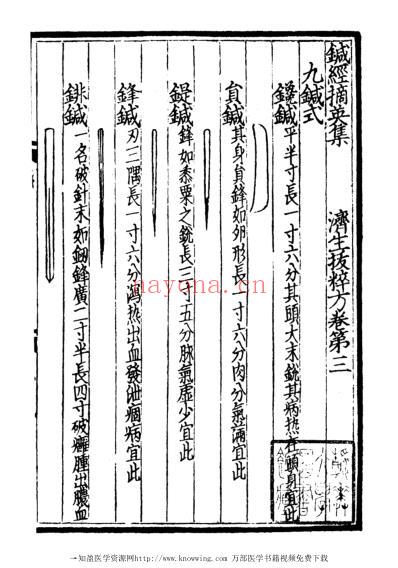 鍼經摘英集　濟生拔粹方卷第三
九鍼式
鑱鍼平半寸長一寸六分其頭大末銳其病热在頭身宜此
員鍼其身員鋒如卵形長一寸六分肉分氣滿宜此
鍉鍼鋒如黍粟之銳長三寸五分脉氣虛少宜此
鋒鍼刃三隅長一寸六分瀉热出血發泄痼病宜此
鈹鍼一名破針末如劔鋒廣二寸半長四寸破癰腫出膿血
nayona.cn
一知盈医学资源网http://www.knowwing.com 万部医学书籍视频免费下载